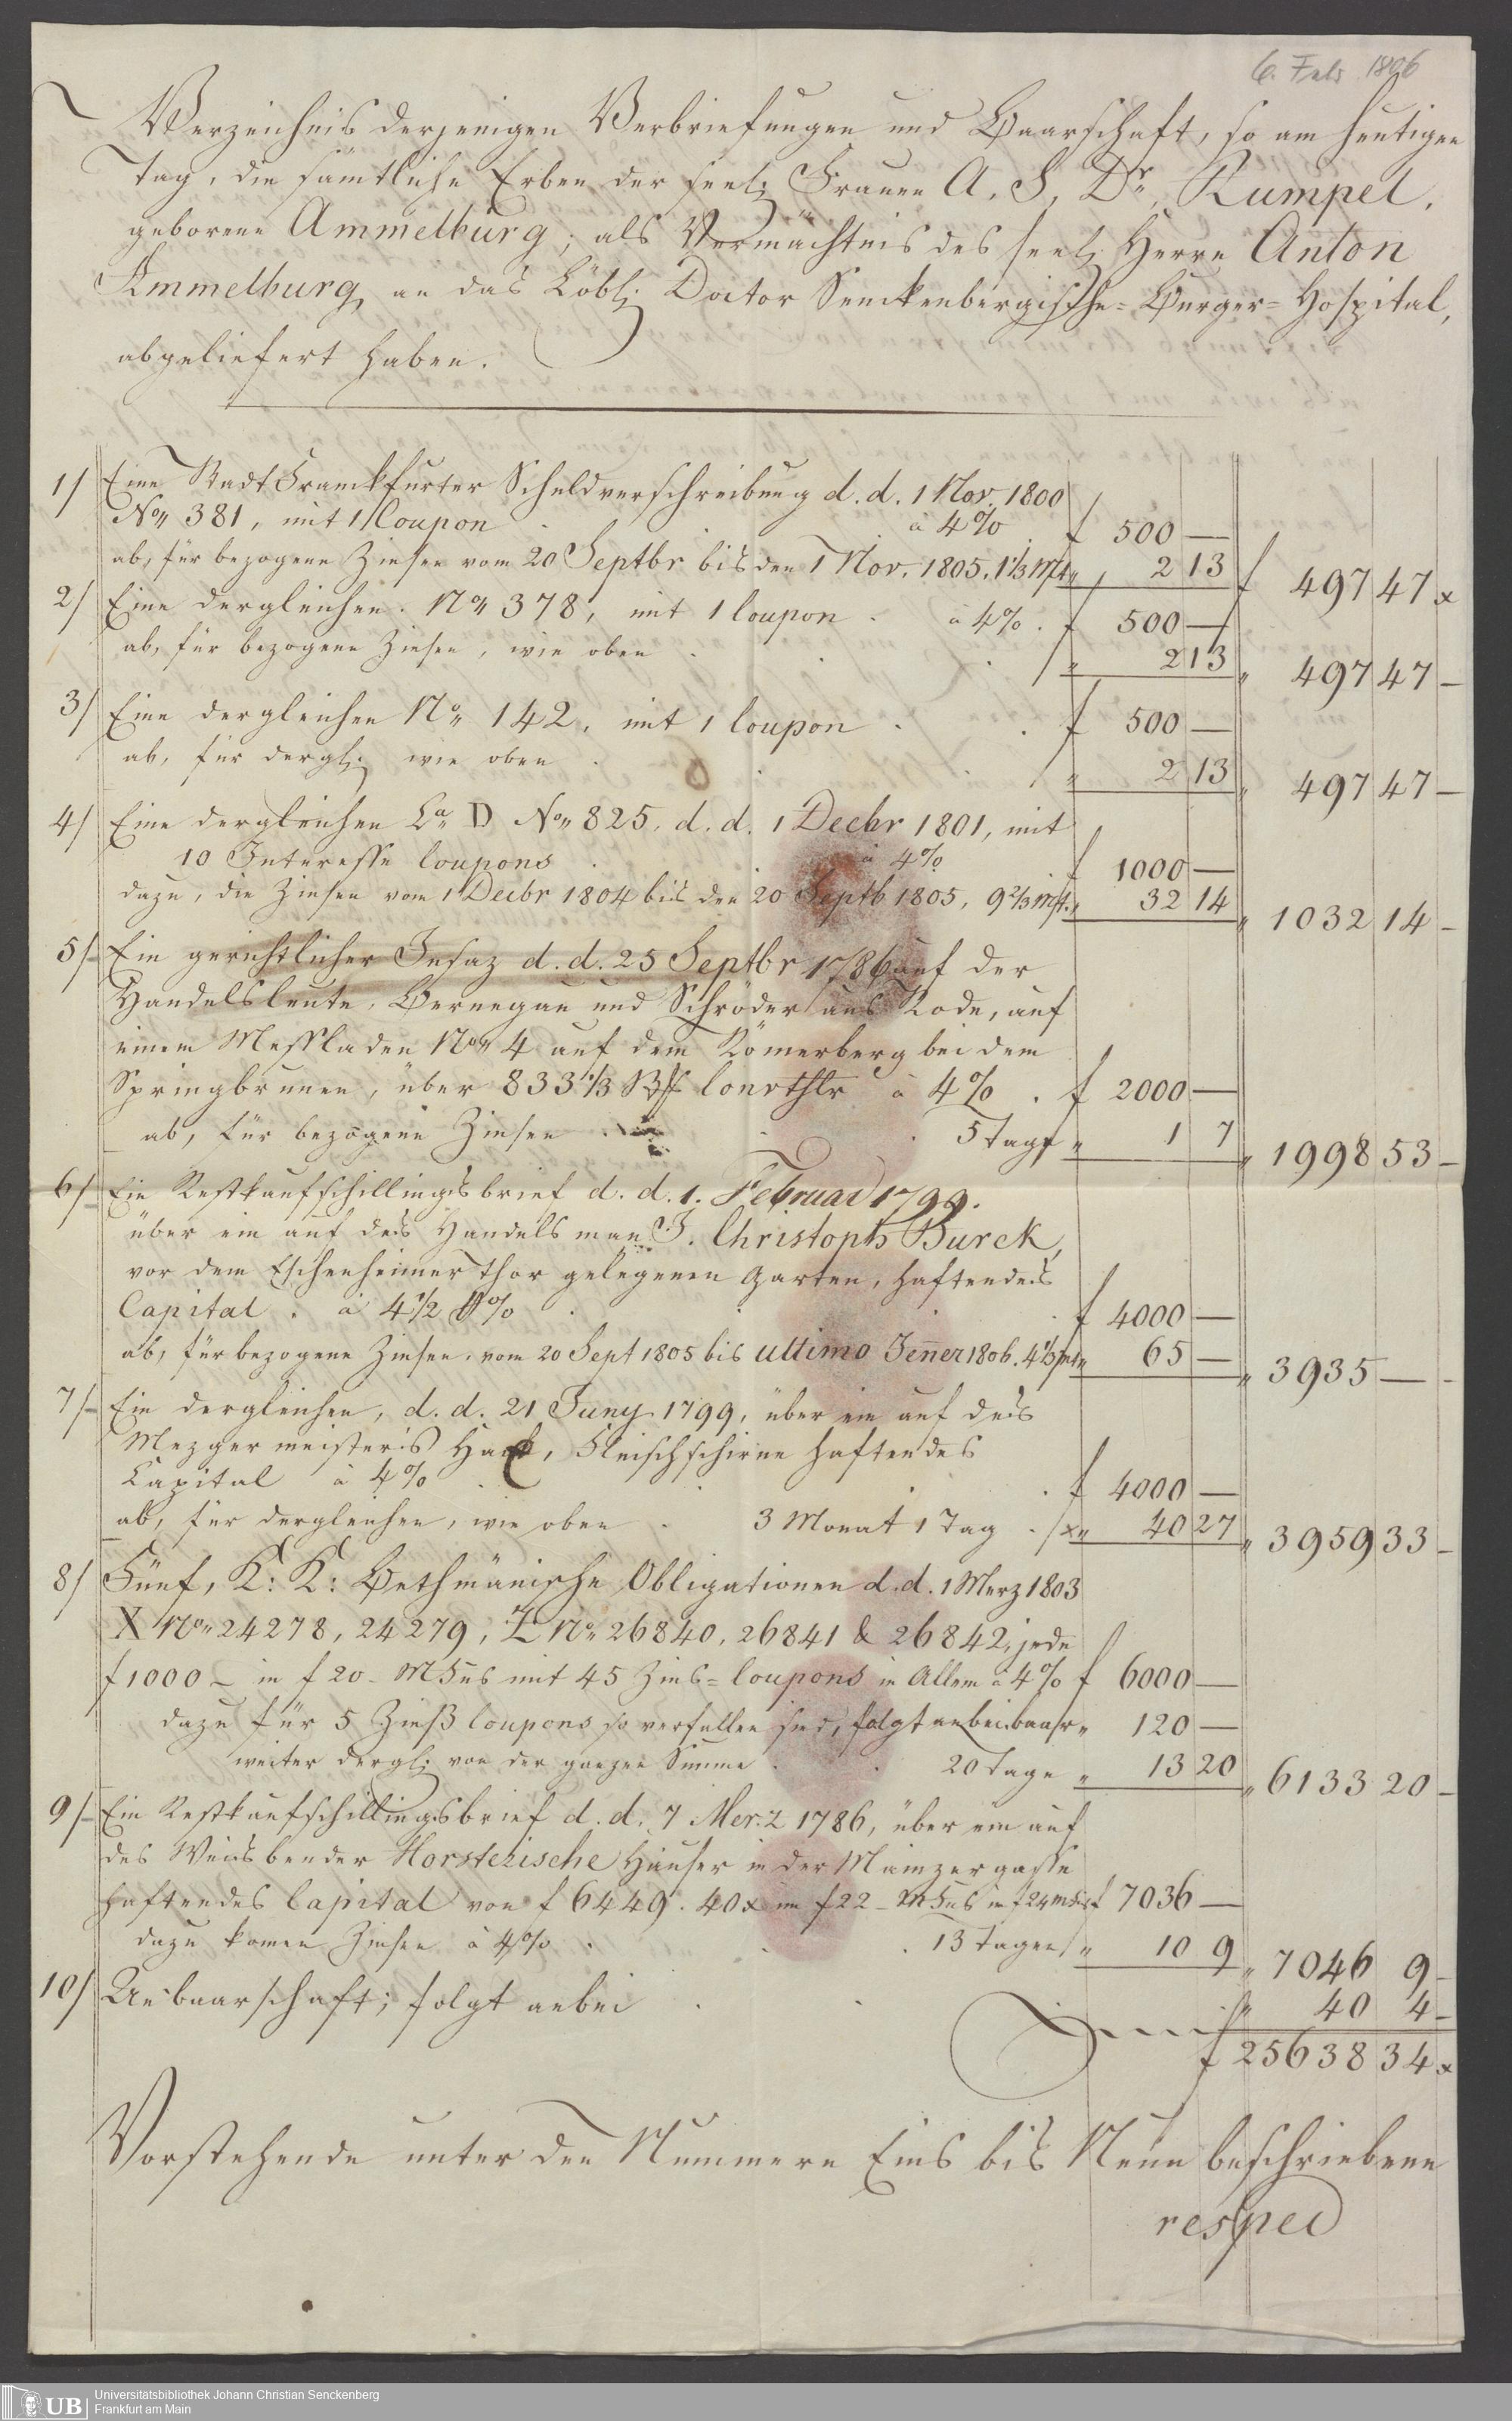 6. Feb. 1806
Verzeichnis derjenigen Verbriefungen und Baarschaft, so am heutigen
Tag, die sämtliche Erben der seel: Frauen A. S. Dr. Rumpel,
geborene Ammelburg, als Vermächtnis des seel: Herrn Anton
Ammelburg, an das Löbl: Doctor Senckenbergische-Burger-Hospital,
abgeliefert haben.
1/ Eine Stadt Franckfurter Schuldverschreibung d. d. 1 Nov. 1800
No„ 381, mit 1 Coupon . à 4% f 500 —
ab, für bezogene Zinsen vom 20 Septbr bis den 1 Nov. 1805. 1⅓ Mt „ 2 13 f 497 47 x
2/ Eine dergleichen. No„ 378, mit 1 Coupon . à 4% . f 500 —
ab, für bezogene Zinsen, wie oben . . . „ 2 13 „ 497 47 —
3/ Eine dergleichen No„ 142, mit 1 Coupon . . f 500 —
ab, für dergl: wie oben . . . „ 2 13 „ 497 47 —
4/ Eine dergleichen La„ D No„ 825, d. d. 1 Decbr 1801, mit
10 Interesse Coupons . à 4% f 1000 —
dazu, die Zinsen vom 1 Decbr 1804 bis den 20 Septb 1805, 9⅔ Mt. „ 32 14 „ 1032 14 —
5/ Ein gerichtlicher Insaz d. d. 25 Septbr 1786 auf der
Handelsleute, Bernegau und Schröder aus Rode, auf
einem Messladen No„ 4 auf dem Römerberg bei dem
Springbrunen, über 833⅓ Convthlr à 4% . f 2000 —
ab, für bezogene Zinsen . . . 5 Tage „ 1 7 „ 1998 53 —
6/ Ein Restkaufschillingsbrief d. d. 1. Februar 1799.
über ein auf des Handelsman J. Christoph Burck,
vor dem Eschenheimer Thor gelegenen Garten, haftendes
Capital . à 4½ p% . . . f 4000 —
ab, für bezogene Zinsen, vom 20 Sept 1805 bis ultimo Jen̄er 1806. 4⅓ Mt „ 65 — „ 3935 — -
7/ Ein dergleichen, d. d. 21 Juny 1799, über ein auf des
Mezgermeisters Hack, Fleischschirne haftendes
Capital à 4% . . f 4000 —
ab, für dergleichen, wie oben . 3 Monat 1 Tag . „ 40 27 „ 3959 33 —
8/ Fünf, K: K: Bethmänische Obligationen d. d. 1 Merz 1803
X No„ 24278, 24279, Z No„ 26840, 26841 & 26842, jede
f 1000 — in f 20 - Mfus mit 45 Zins-Coupons in Allem à 4% f 6000 —
dazu für 5 Zinß Coupons so verfallen sind, folgt anbei baar „ 120 —
weiter dergl: von der ganzen Summe . . 20 Tage „ 13 20 „ 6133 20 —
9/ Ein Restkaufschillingsbrief d. d. 7 Merz 1786, über ein auf
des Weisbender Horsterische Häuser in der Mainzergasse
haftendes Capital von f 6449. 40 x im f 22 - Mfus in f 24 Mfus f 7036 —
dazu komen Zinsen à 4% . . . 13 Tagen „ 10 9 „ 7046 9 —
10/ An baarschaft; folgt anbei . . . „ 40 4 —
f 25638 34 x
Vorstehende unter den Nummern Eins bis Neun beschriebene
respec
UB Universitätsbibliothek Johann Christian Senckenberg
Frankfurt am Main